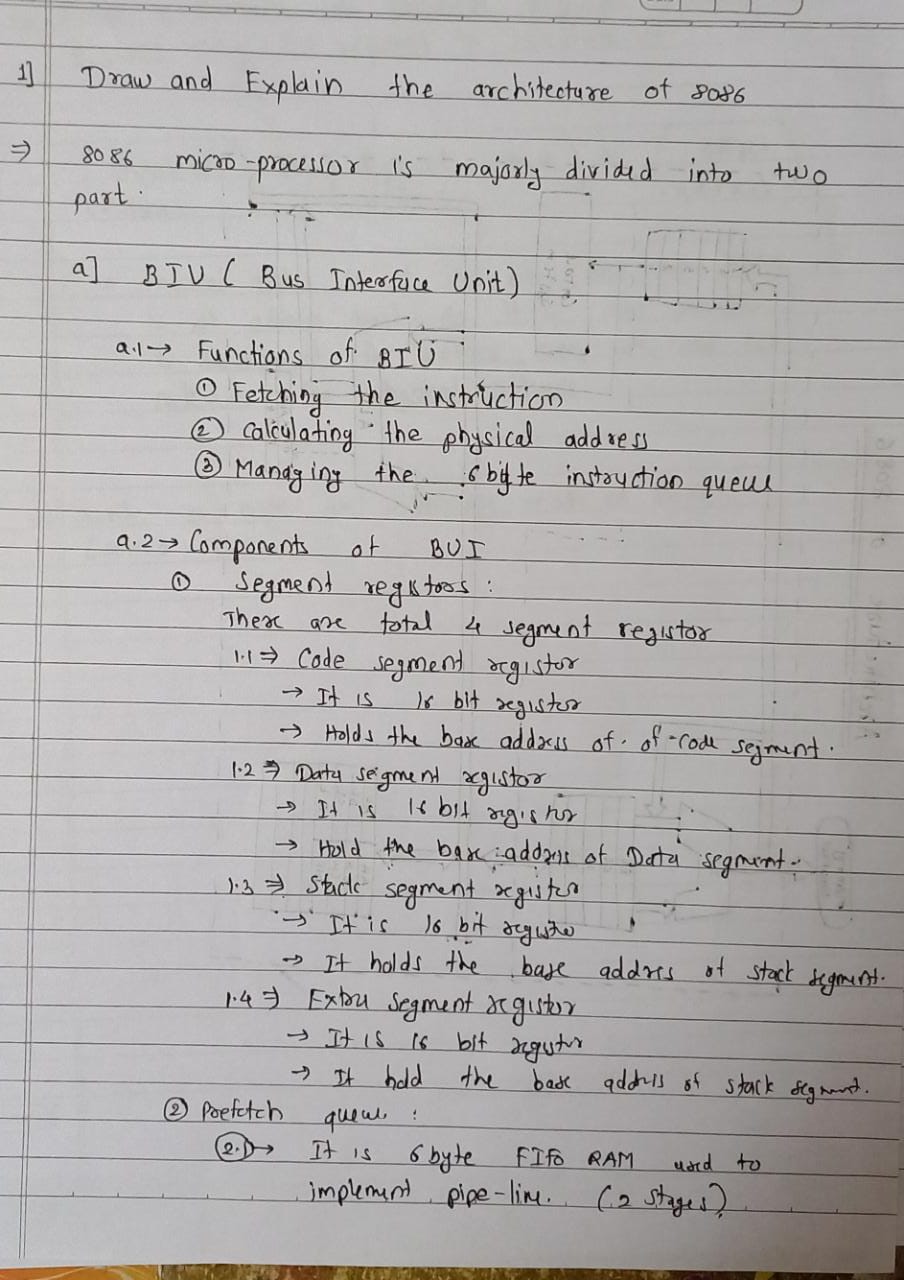 1] Draw and Explain the architecture of 8086
⇒ 8086 micro-processor is majorly divided into two
part.
a] BIU ( Bus Interface Unit)
a.1→ Functions of BIU
① Fetching the instruction
② Calculating the physical address
③ Managing the 6 byte instruction queue
a.2→ Components of BUI
① Segment registors :
There are total 4 segment registor
1.1⇒ Code segment registor
→ It is 16 bit registor
→ Holds the base address of. of-code segment.
1.2⇒ Data segment registor
→ It is 16 bit registor
→ Hold the base address of Data segment.
1.3⇒ Stack segment registor
→ It is 16 bit registor
→ It holds the base address of stack segment.
1.4⇒ Extra segment registor
→ It is 16 bit registor
→ It hold the base address of stack segment.
② Prefetch queue :
2.1→ It is 6 byte FIFO RAM used to
implement pipe-line. (2 stages)